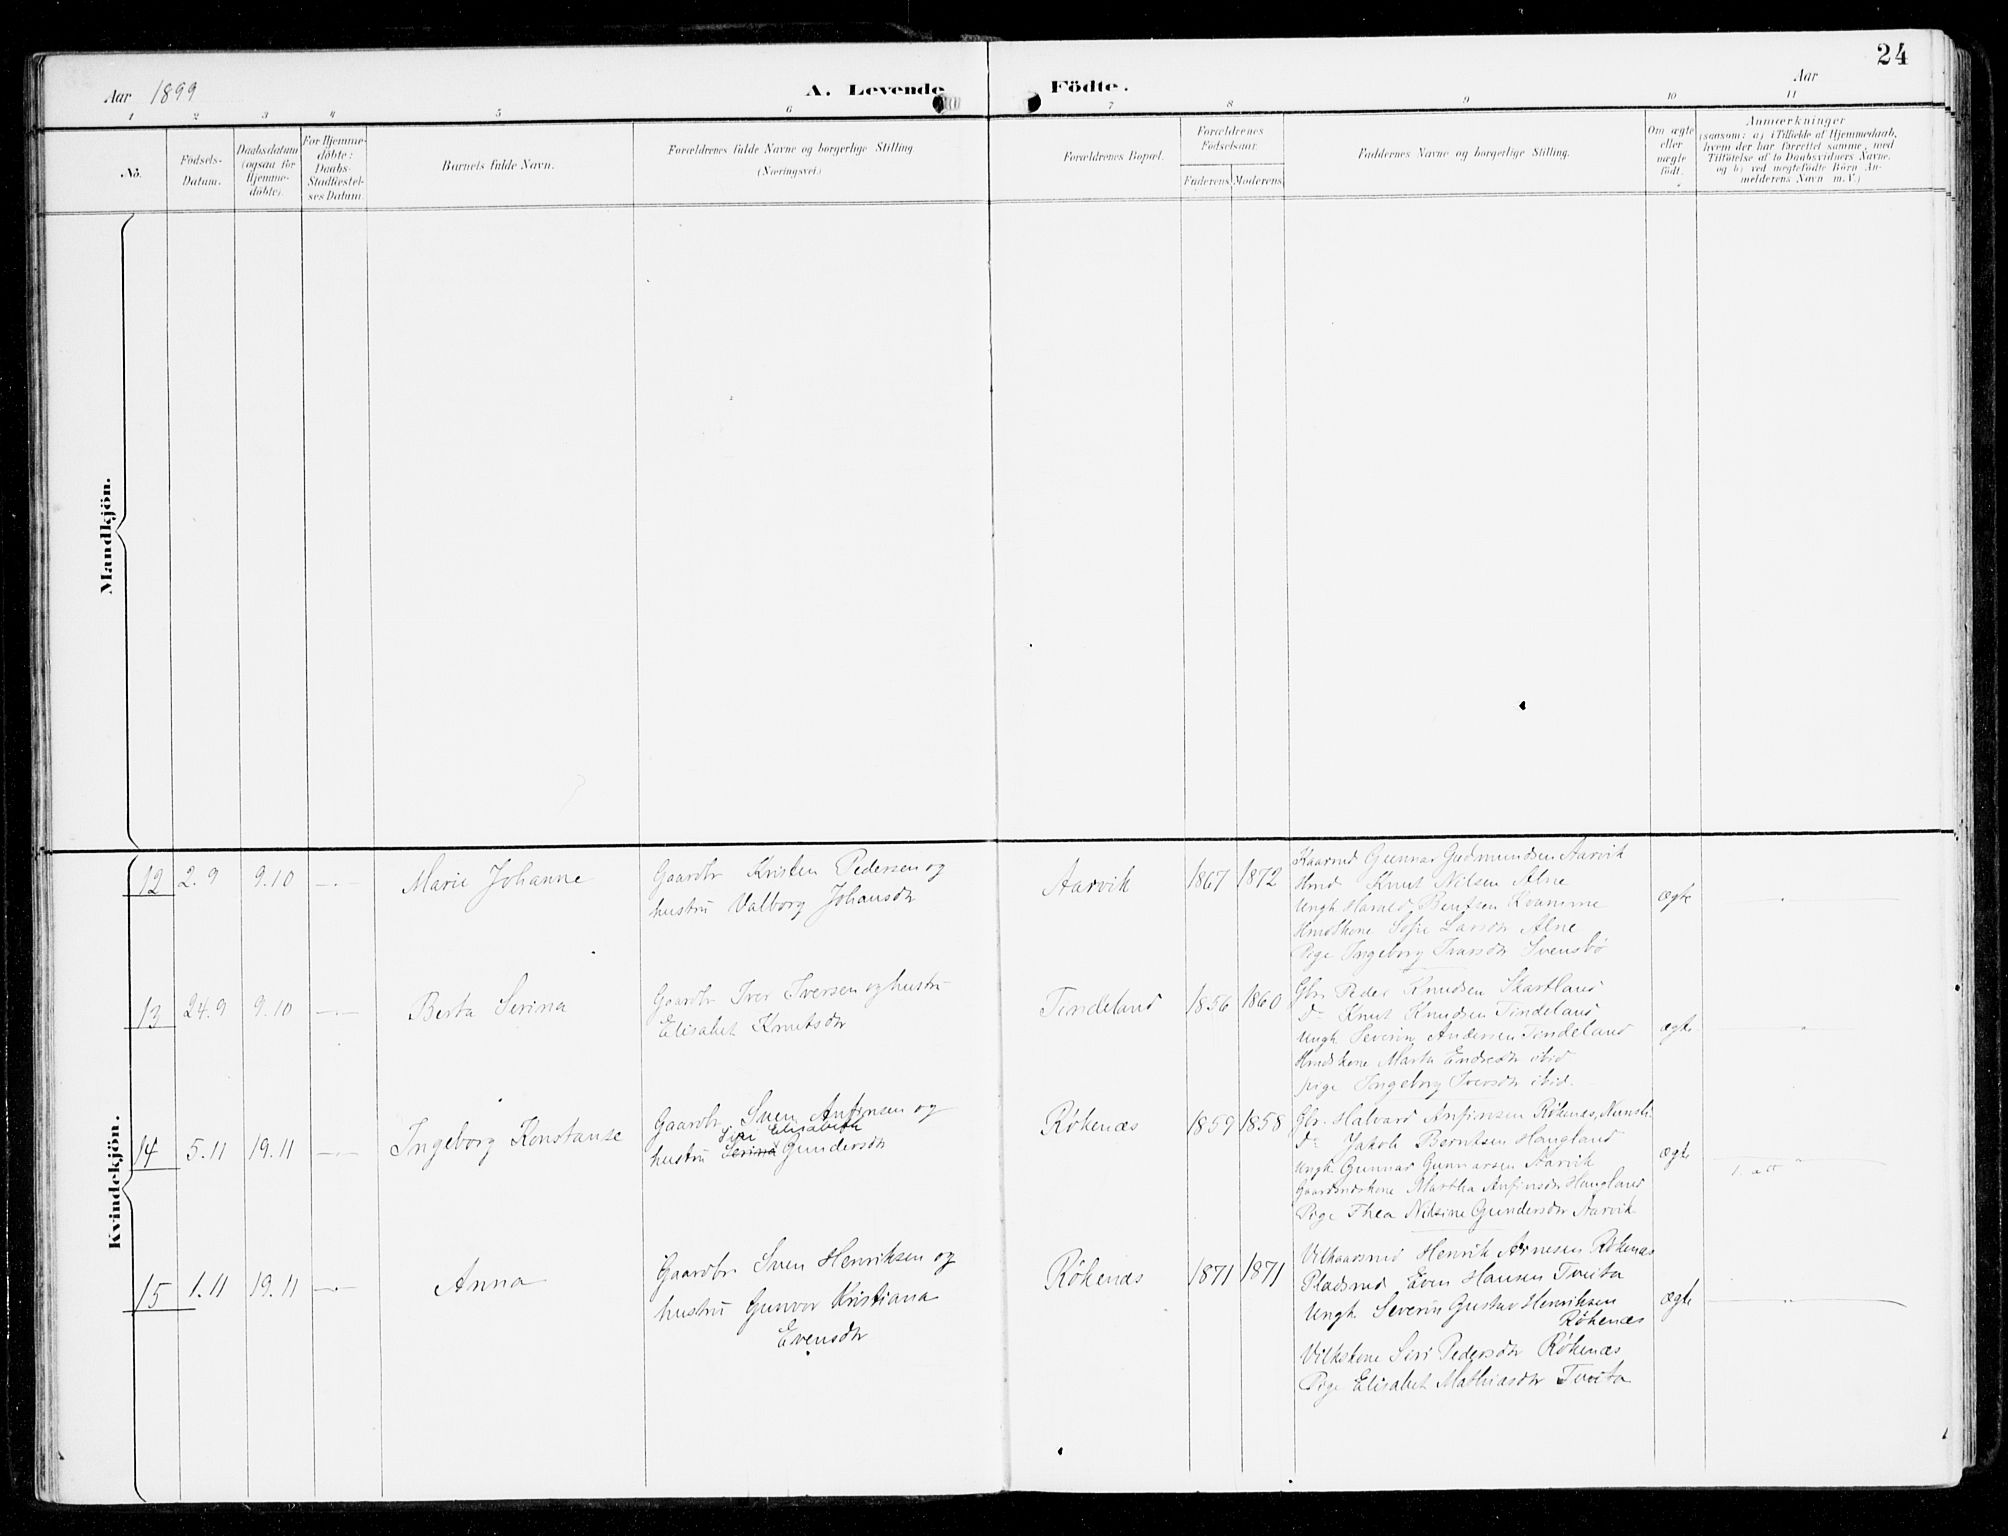 24
Aar 1899
A. Levende Födte.
Aar
1 2 3 4 5 6 7 8 9 10 11
No.
Födsels-
Datum.
Daabsdatum
(ogsaa for
Hjemme-
döbte).
For Hjemme-
döbte:
Daabs-
Stadfæstel-
ses Datum
Barnets fulde Navn.
Forældrenes fulde Navne og borgerlige Stilling.
(Næringsvei.)
Forældrenes Bopæl.
Forældrenes
Födselsaar.
Faderens Moderens
Faddernes Navne og borgerlige Stilling.
Om ægte
eller
uægte
födt.
Anmærkninger
(saasom: a) i Tilfælde af Hjemmedaab,
hvem der har forrettet samme, med
Tilföielse af to Daabsvidners Navne.
og b) ved uegtefödte Börn An-
melderens Navn m.V.)
Mandkjön.
Kvindekjön.
12 2.9 9.10 —.—
Marie Johanne
Gaardbr Kristen Pedersen og
hustru Valborg Johansdr
Aarvik
1867 1872
Kaarmd Gunnar Gudmundsen Aarvik
Hmd Knut Nilsen Alne
Ungk Harald Bentsen Kvamme
Hmdkone Sofie Larsdr Alne
Pige Ingeborg Ivarsdr Svensbö
ægte
13 24.9 9.10 —.—
Berta Serina
Gaardbr Iver Iversen og hustru
Elisabet Knutsdr
Tindeland
1856 1860
Gbr Peder Knudsen Skartland
Do Knut Knudsen Tindeland
Ungk Severin Andersen Tindeland
Hmdskone Marta Endresdr ibid
pige Ingeborg Iversdr ibid.
ægte
14 5.11 19.11 —.—
Ingeborg Konstanse
Gaardbr Sven Anfinsen og
Siri Elisabeth
hustru Serina Gundersdr
Rökenæs
1859 1858
Gbr. Halvard Anfinsen Rökenæs,
Do Jakob Berntsen Haugland
Ungk Gunnar Gunnarsen Aarvik
Gaardmdskone Martha Anfinsdr Haugland
Pige Thea Nilsine Gundersdr Aarvik
ægte
15 1.11 19.11 —.—
Anna
Gaardbr Sven Henriksen og
hustru Gunvor Kristiana
Evensdr
Rökenæs
1871 1871
Vilkaarsmd Henrik Arnesen Rökenæs
Pladsmd Even Hansen Tveita
Ungk Severin Gustav Henriksen
Rökenæs
Vilkskone Siri Pedersdr Rökenæs
Pige Elisabet Mathiasdr Tveita
ægte